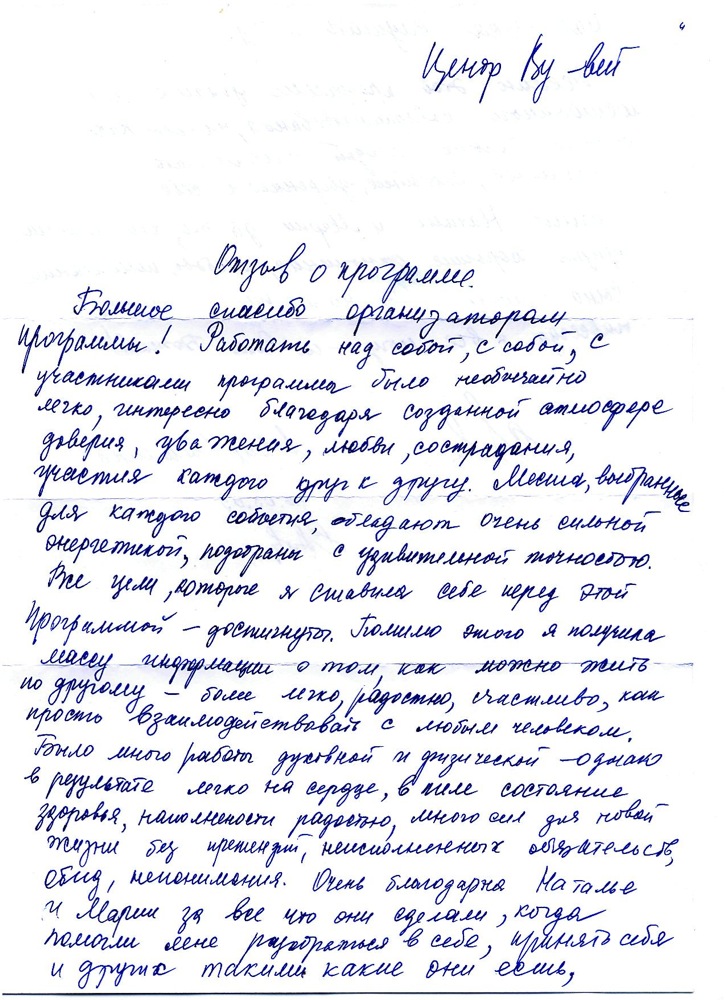 Центр Ву-вей
Отзыв о программе.
Большое спасибо организаторам
программы! Работать над собой, с собой, с
участниками программы было необычайно
легко, интересно благодаря созданной атмосфере
доверия, уважения, любви, сострадания,
участия каждого друг к другу. Места, выбранные
для каждого события, обладают очень сильной
энергетикой, подобраны с удивительной точностью.
Все цели, которые я ставила себе перед этой
Программой – достигнуты. Помимо этого я получила
массу информации о том, как можно жить
по другому – более легко, радостно, счастливо, как
просто взаимодействовать с любым человеком.
Было много работы духовной и физической – однако
в результате легко на сердце, в теле состояние
здоровья, наполнености радостью, много сил для новой
жизни без претензий, неисполненных обязательств,
обид, непонимания. Очень благодарна Наталье
и Марии за все что они сделали, когда
помогли мене разобраться в себе, принять себя
и других такими какие они есть,